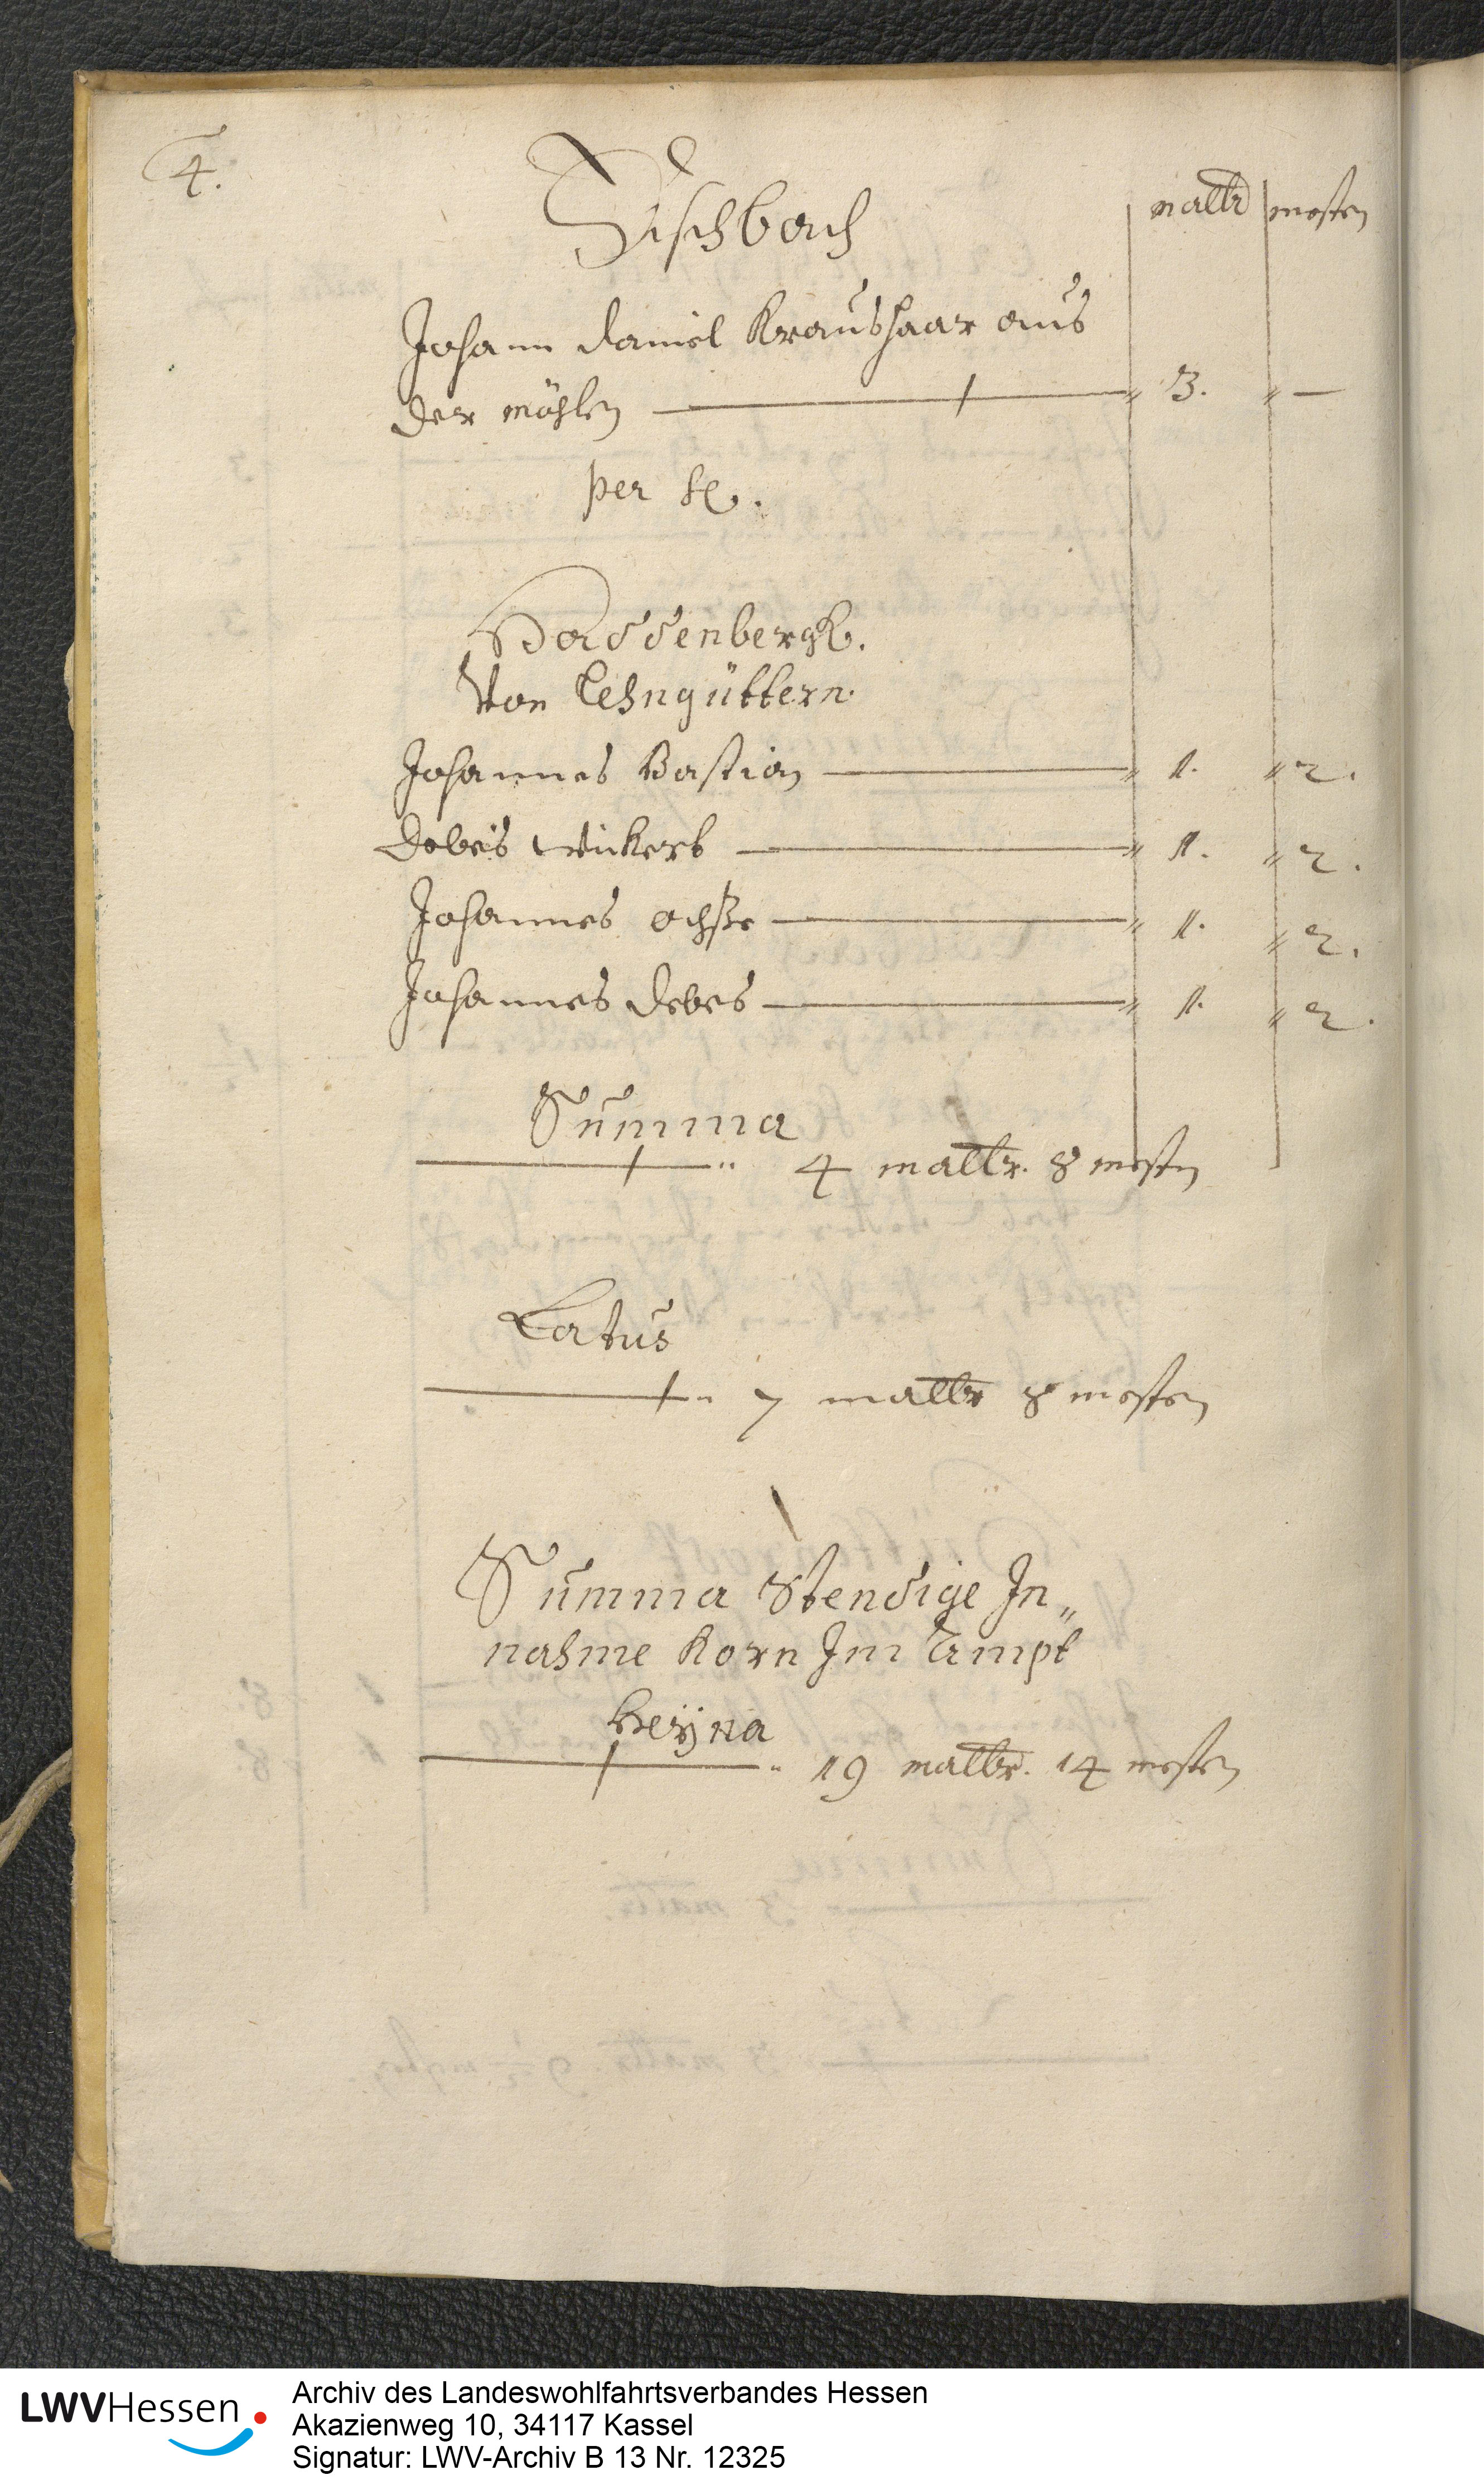 4.
Fischbach
maltr mesten
Johann Daniel Kraushaar aus
der möhlen 3. —
per se.
Haddenbergk.
Von Lehngüttern.
Johannes Bastian 1. 2.
Debes Wickert 1. 2.
Johannes Ochße 1. 2.
Johannes Debes 1. 2.
Summa
4 maltr. 8 mestn
Latus
7 maltr 8 mesten
Summa Stendige In„
nahme Korn Im Ampt
Heÿna
19 maltr. 14 mesten
LWVHessen
Archiv des Landeswohlfahrtsverbandes Hessen
Akazienweg 10, 34117 Kassel
Signatur: LWV-Archiv B 13 Nr. 12325